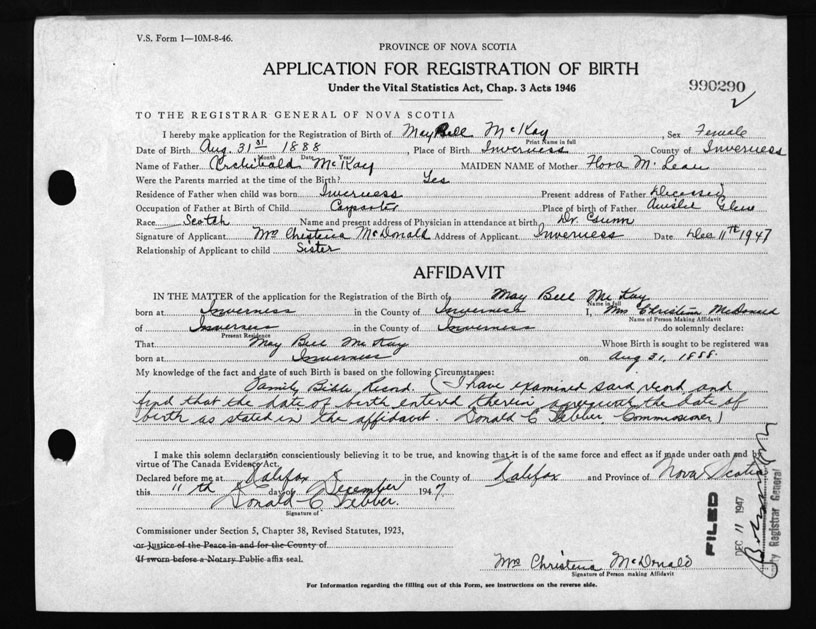 V.S. Form 1—10M-8-46.
PROVINCE OF NOVA SCOTIA
APPLICATION FOR REGISTRATION OF BIRTH
990290
Under the Vital Statistics Act, Chap. 3 Acts 1946
2
TO THE REGISTRAR GENERAL OF NOVA SCOTIA
I hereby make application for the Registration of Birth of May Bell McKay, Sex Female
Print Name in full
Date of Birth Aug. 31st 1888, Place of Birth Inverness County of Inverness
Month Date Year
Name of Father Archibald McKay MAIDEN NAME of Mother Flora McLean
Were the Parents married at the time of the Birth? Yes
Residence of Father when child was born Inverness Present address of Father Deceased
Occupation of Father at Birth of Child Carpenter Place of birth of Father Ainslie Glen
Race Scotch Name and present address of Physician in attendance at birth Dr. Gunn
Signature of Applicant Mrs Christena McDonald Address of Applicant Inverness Date Dec 11th 1947
Relationship of Applicant to child Sister
AFFIDAVIT
IN THE MATTER of the application for the Registration of the Birth of May Bell McKay
Name in full
born at Inverness in the County of Inverness I, Mrs Christena McDonald
Name of Person Making Affidavit
of Inverness in the County of Inverness do solemnly declare:
Present Residence
That May Bell McKay Whose Birth is sought to be registered was
born at Inverness on Aug 31, 1888.
My knowledge of the fact and date of such Birth is based on the following Circumstances:
Family Bible Record. (I have examined said record and
find that the date of birth entered therein agrees with the date of
birth as stated in the affidavit. Donald C Webber, Commissioner)
I make this solemn declaration conscientiously believing it to be true, and knowing that it is of the same force and effect as if made under oath and by
virtue of The Canada Evidence Act.
Declared before me at Halifax in the County of Halifax and Province of Nova Scotia
this 11th day of December 1947.
Donald C. Webber.
Signature of
Commissioner under Section 5, Chapter 38, Revised Statutes, 1923,
or Justice of the Peace in and for the County of
If sworn before a Notary Public affix seal.
Mrs Christena McDonald
Signature of Person making Affidavit
FILED
DEC 11 1947
Registrar General
For Information regarding the filling out of this Form, see instructions on the reverse side.